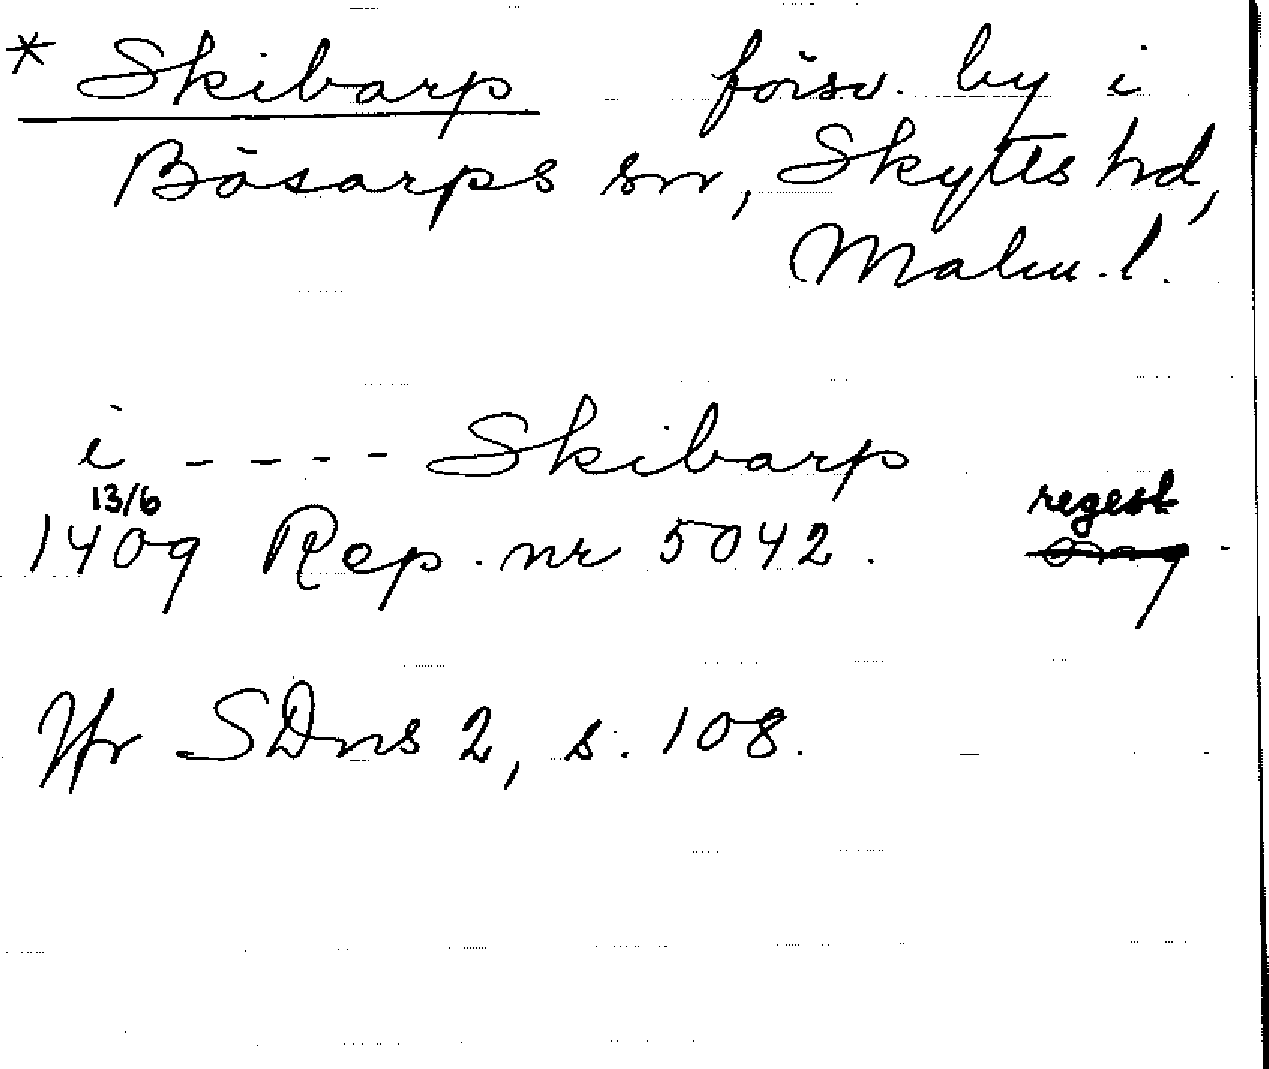 * Skibarp försv. by i
Bösarps sn, Skytts hd,
Malm. l.
i - - - - Skibarp
13/6 regest
1409 Rep. nr 5042.
Jfr SDns 2, s. 108.